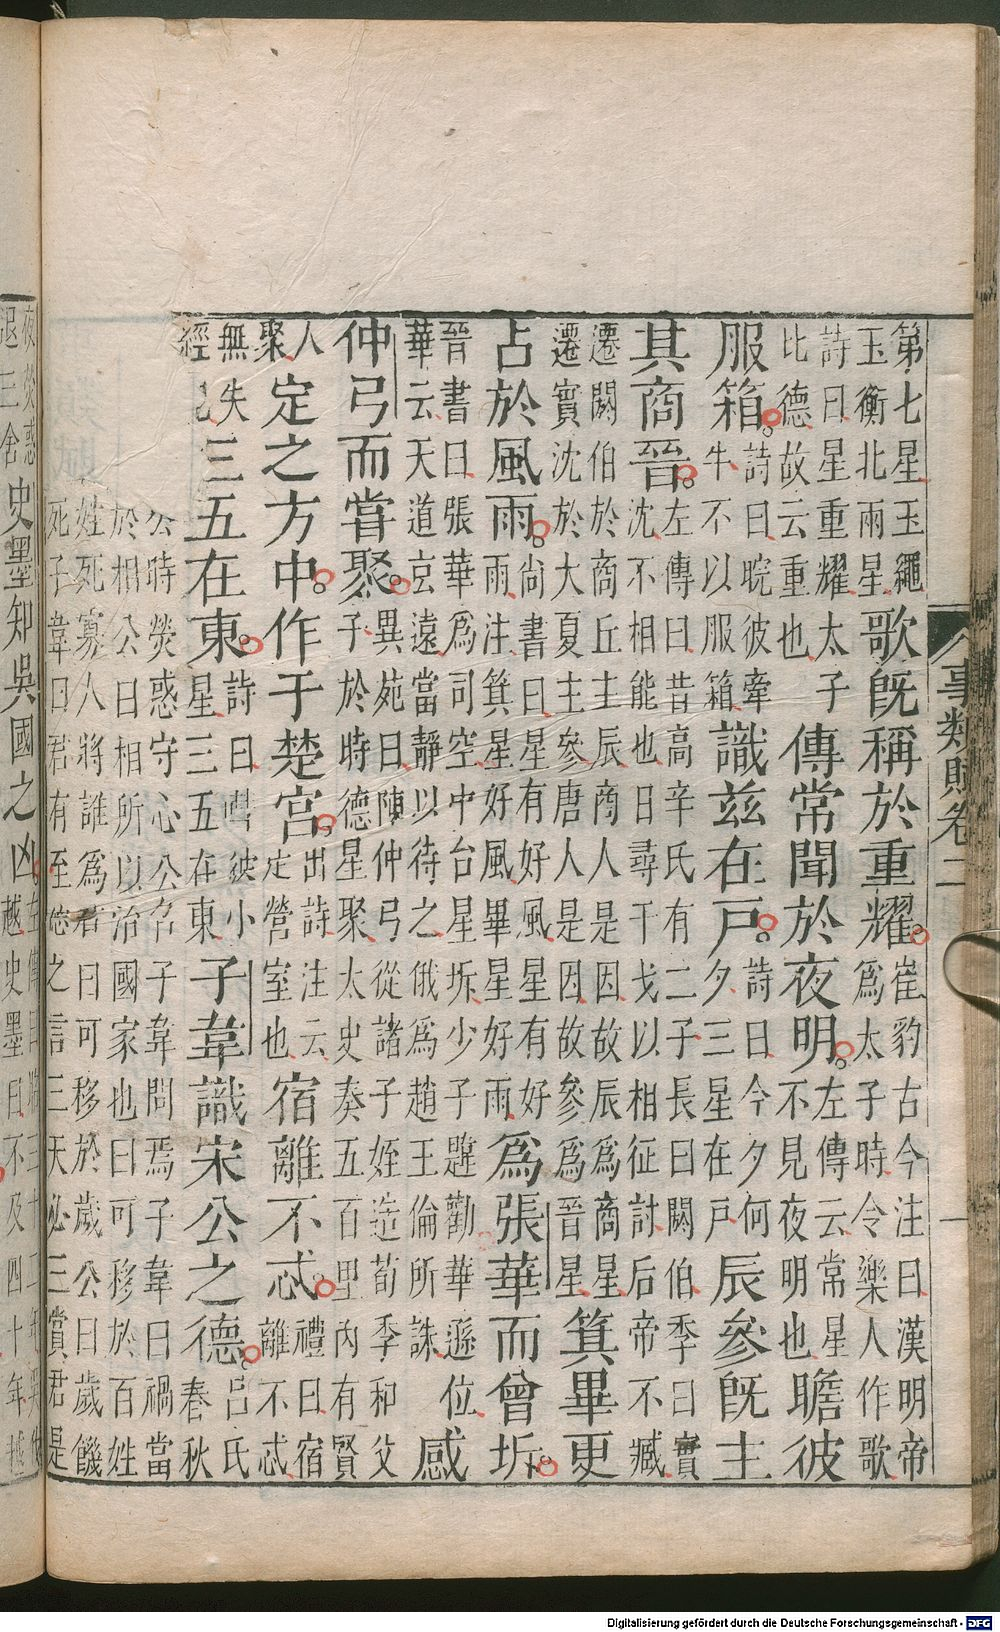 事類賦卷二
一
第七星玉繩
玉衡北兩星
歌既稱於重耀
崔豹古今注曰漢明帝
為太子時令樂人作歌
詩曰星重耀太子
比德故云重也
傳常聞於夜明
左傳云常星
不見夜明也
瞻彼
服箱
詩曰睆彼牽
牛不以服箱
識茲在戶
詩曰今夕何
夕三星在戶
辰參既主
其商晉
左傳曰昔高辛氏有二子長曰閼伯季曰實
沈不相能也日尋干戈以相征討后帝不臧
遷閼伯於商丘主辰商人是因故辰為商星
遷實沈於大夏主參唐人是因故參為晉星
箕畢更
占於風雨
尚書曰星有好風星有好
雨注箕星好風畢星好雨
為張華而曾坼
晉書曰張華為司空中台星坼少子韙勸華遜位
華云天道玄遠當靜以待之俄為趙王倫所誅
感
仲弓而嘗聚
異苑曰陳仲弓從諸子姪造荀季和父
子於時德星聚太史奏五百里內有賢
人
聚
定之方中作于楚宮
出詩注云
定營室也
宿離不忒
禮曰宿
離不忒
無失
經已
三五在東
詩曰嘒彼小
星三五在東
子韋識宋公之德
呂氏
春秋
公時熒惑守心公召子韋問焉子韋曰禍當
於相公曰相所以治國家也曰可移於百姓
姓死寡人將誰為君曰可移於歲公曰歲饑
死子韋曰君有至德之言三天必三賞君是
夜熒惑
退三舍
史墨知吳國之凶
左傳曰
越史墨曰不及四十年越
Digitalisierung gefördert durch die Deutsche Forschungsgemeinschaft - DFG